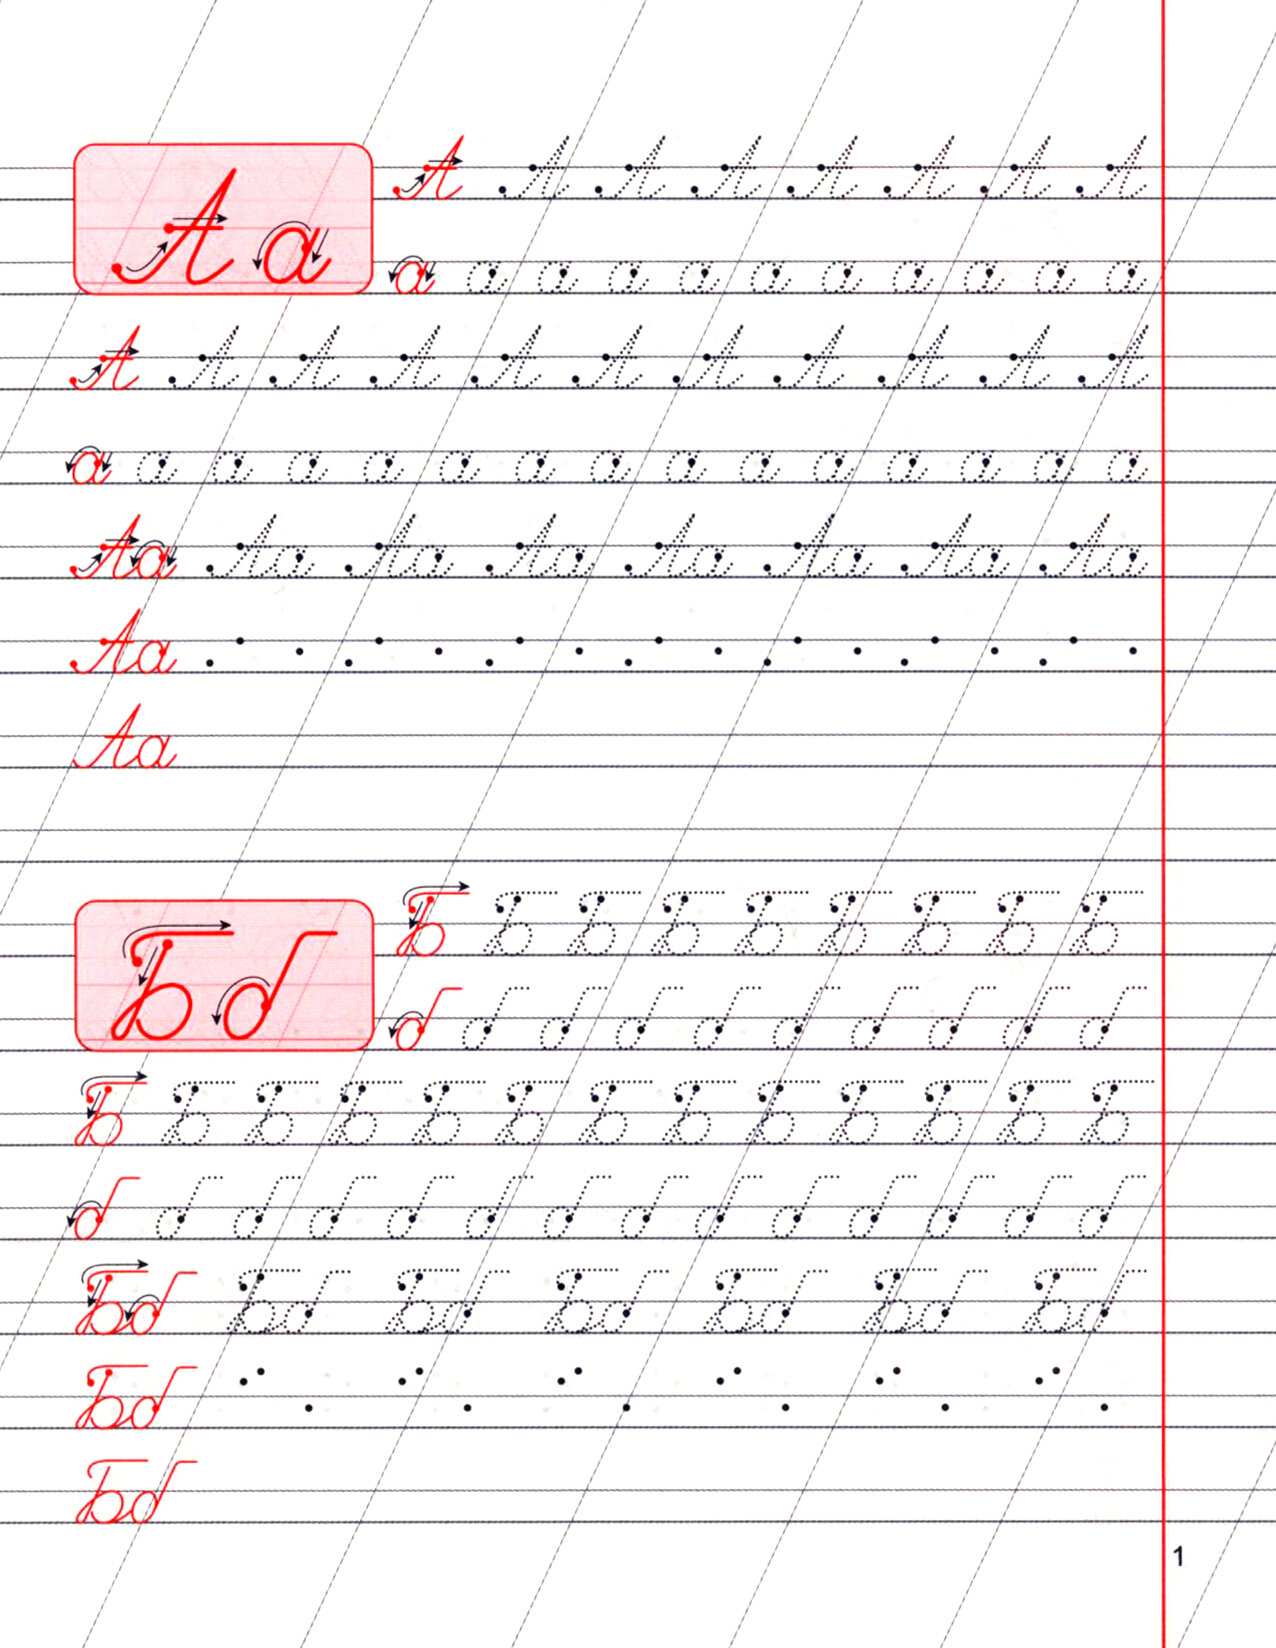 А а
А А А А А А А А
а а а а а а а а а а а
А А А А А А А А А А А
а а а а а а а а а а а а а а а
Аа Аа Аа Аа Аа Аа Аа Аа
Аа
Аа
Б б
Б Б Б Б Б Б Б Б Б
б б б б б б б б б б
Б Б Б Б Б Б Б Б Б Б Б Б Б
б б б б б б б б б б б б б б
Бб Бб Бб Бб Бб Бб Бб
Бб
Бб
1